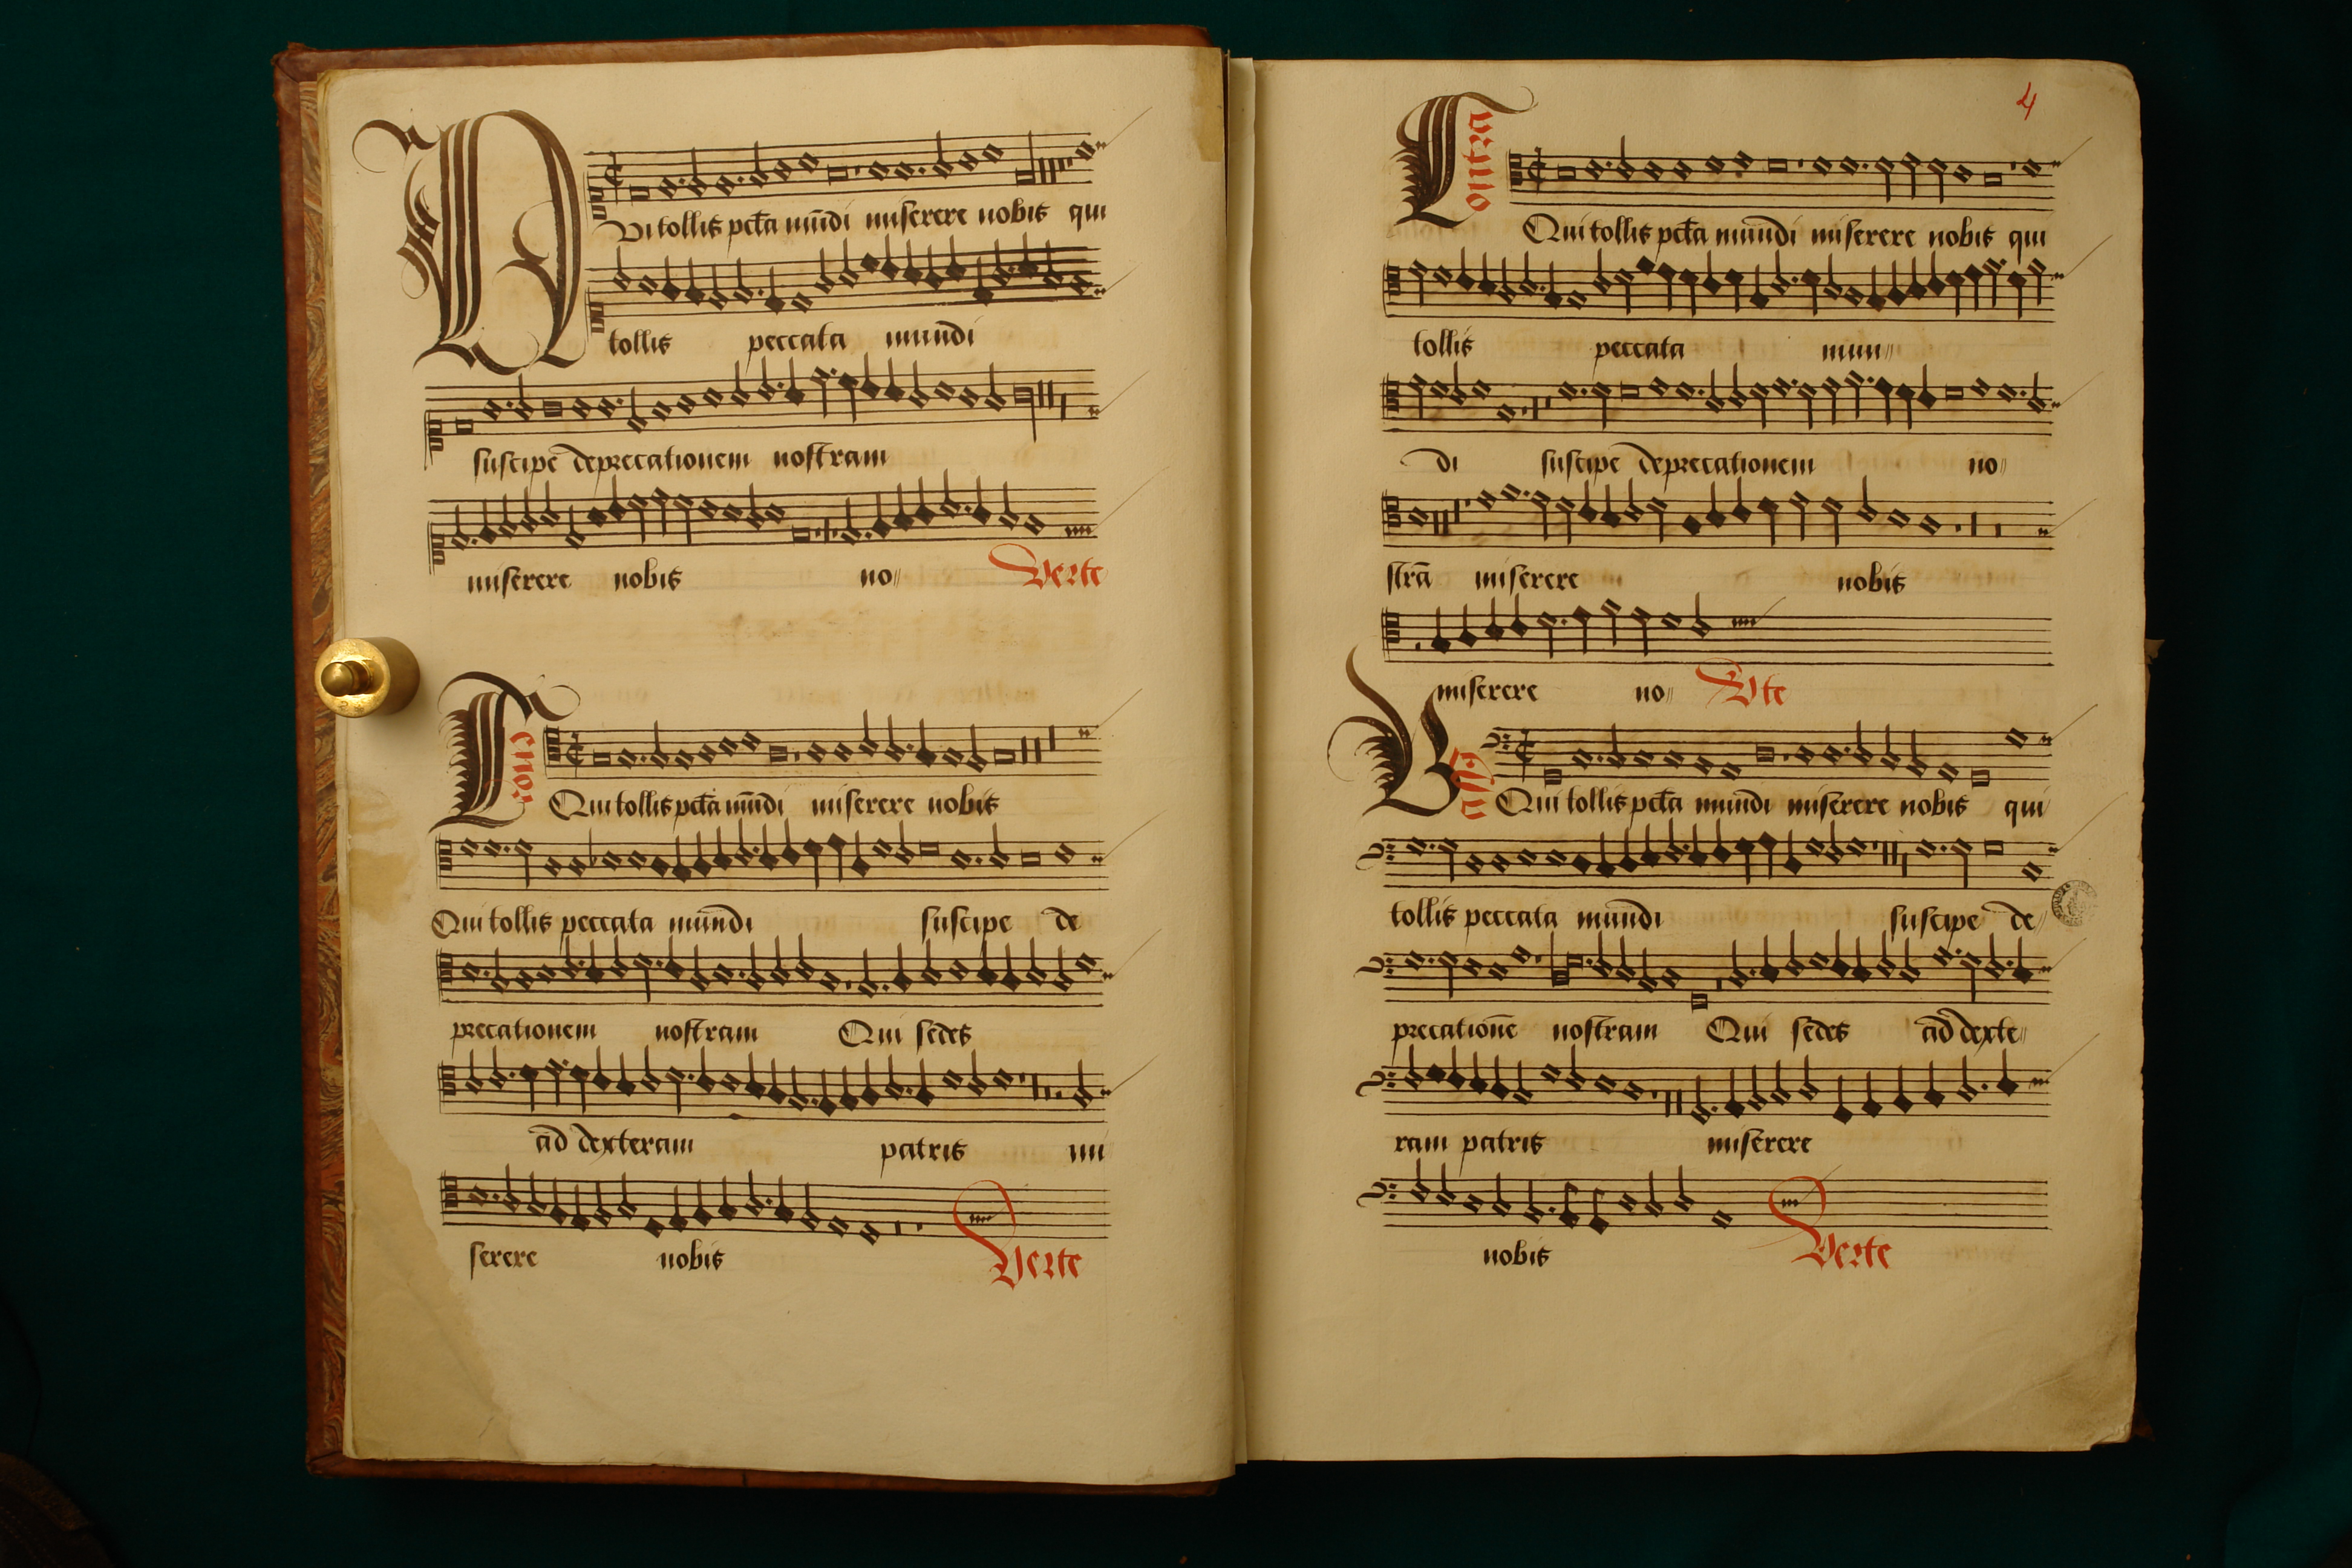 Qui tollis pctā mūdi miserere nobis qui
tollis peccata mundi
suscipe deprecationem nostram
miserere nobis no〃 Verte
Tenor
Qui tollis pctā mūdi miserere nobis
Qui tollis peccata mundi suscipe de
precationem nostram Qui sedes
ad dexteram patris mi
serere nobis Verte
4
Qui tollis pctā mundi miserere nobis qui
tollis peccata mun〃
di suscipe deprecationem no〃
strā miserere nobis
miserere no〃 Vte
Bassus
Qui tollis pctā mundi miserere nobis qui
tollis peccata mundi suscipe de〃
precationē nostram Qui sedes ad dexte〃
ram patris miserere
nobis Verte